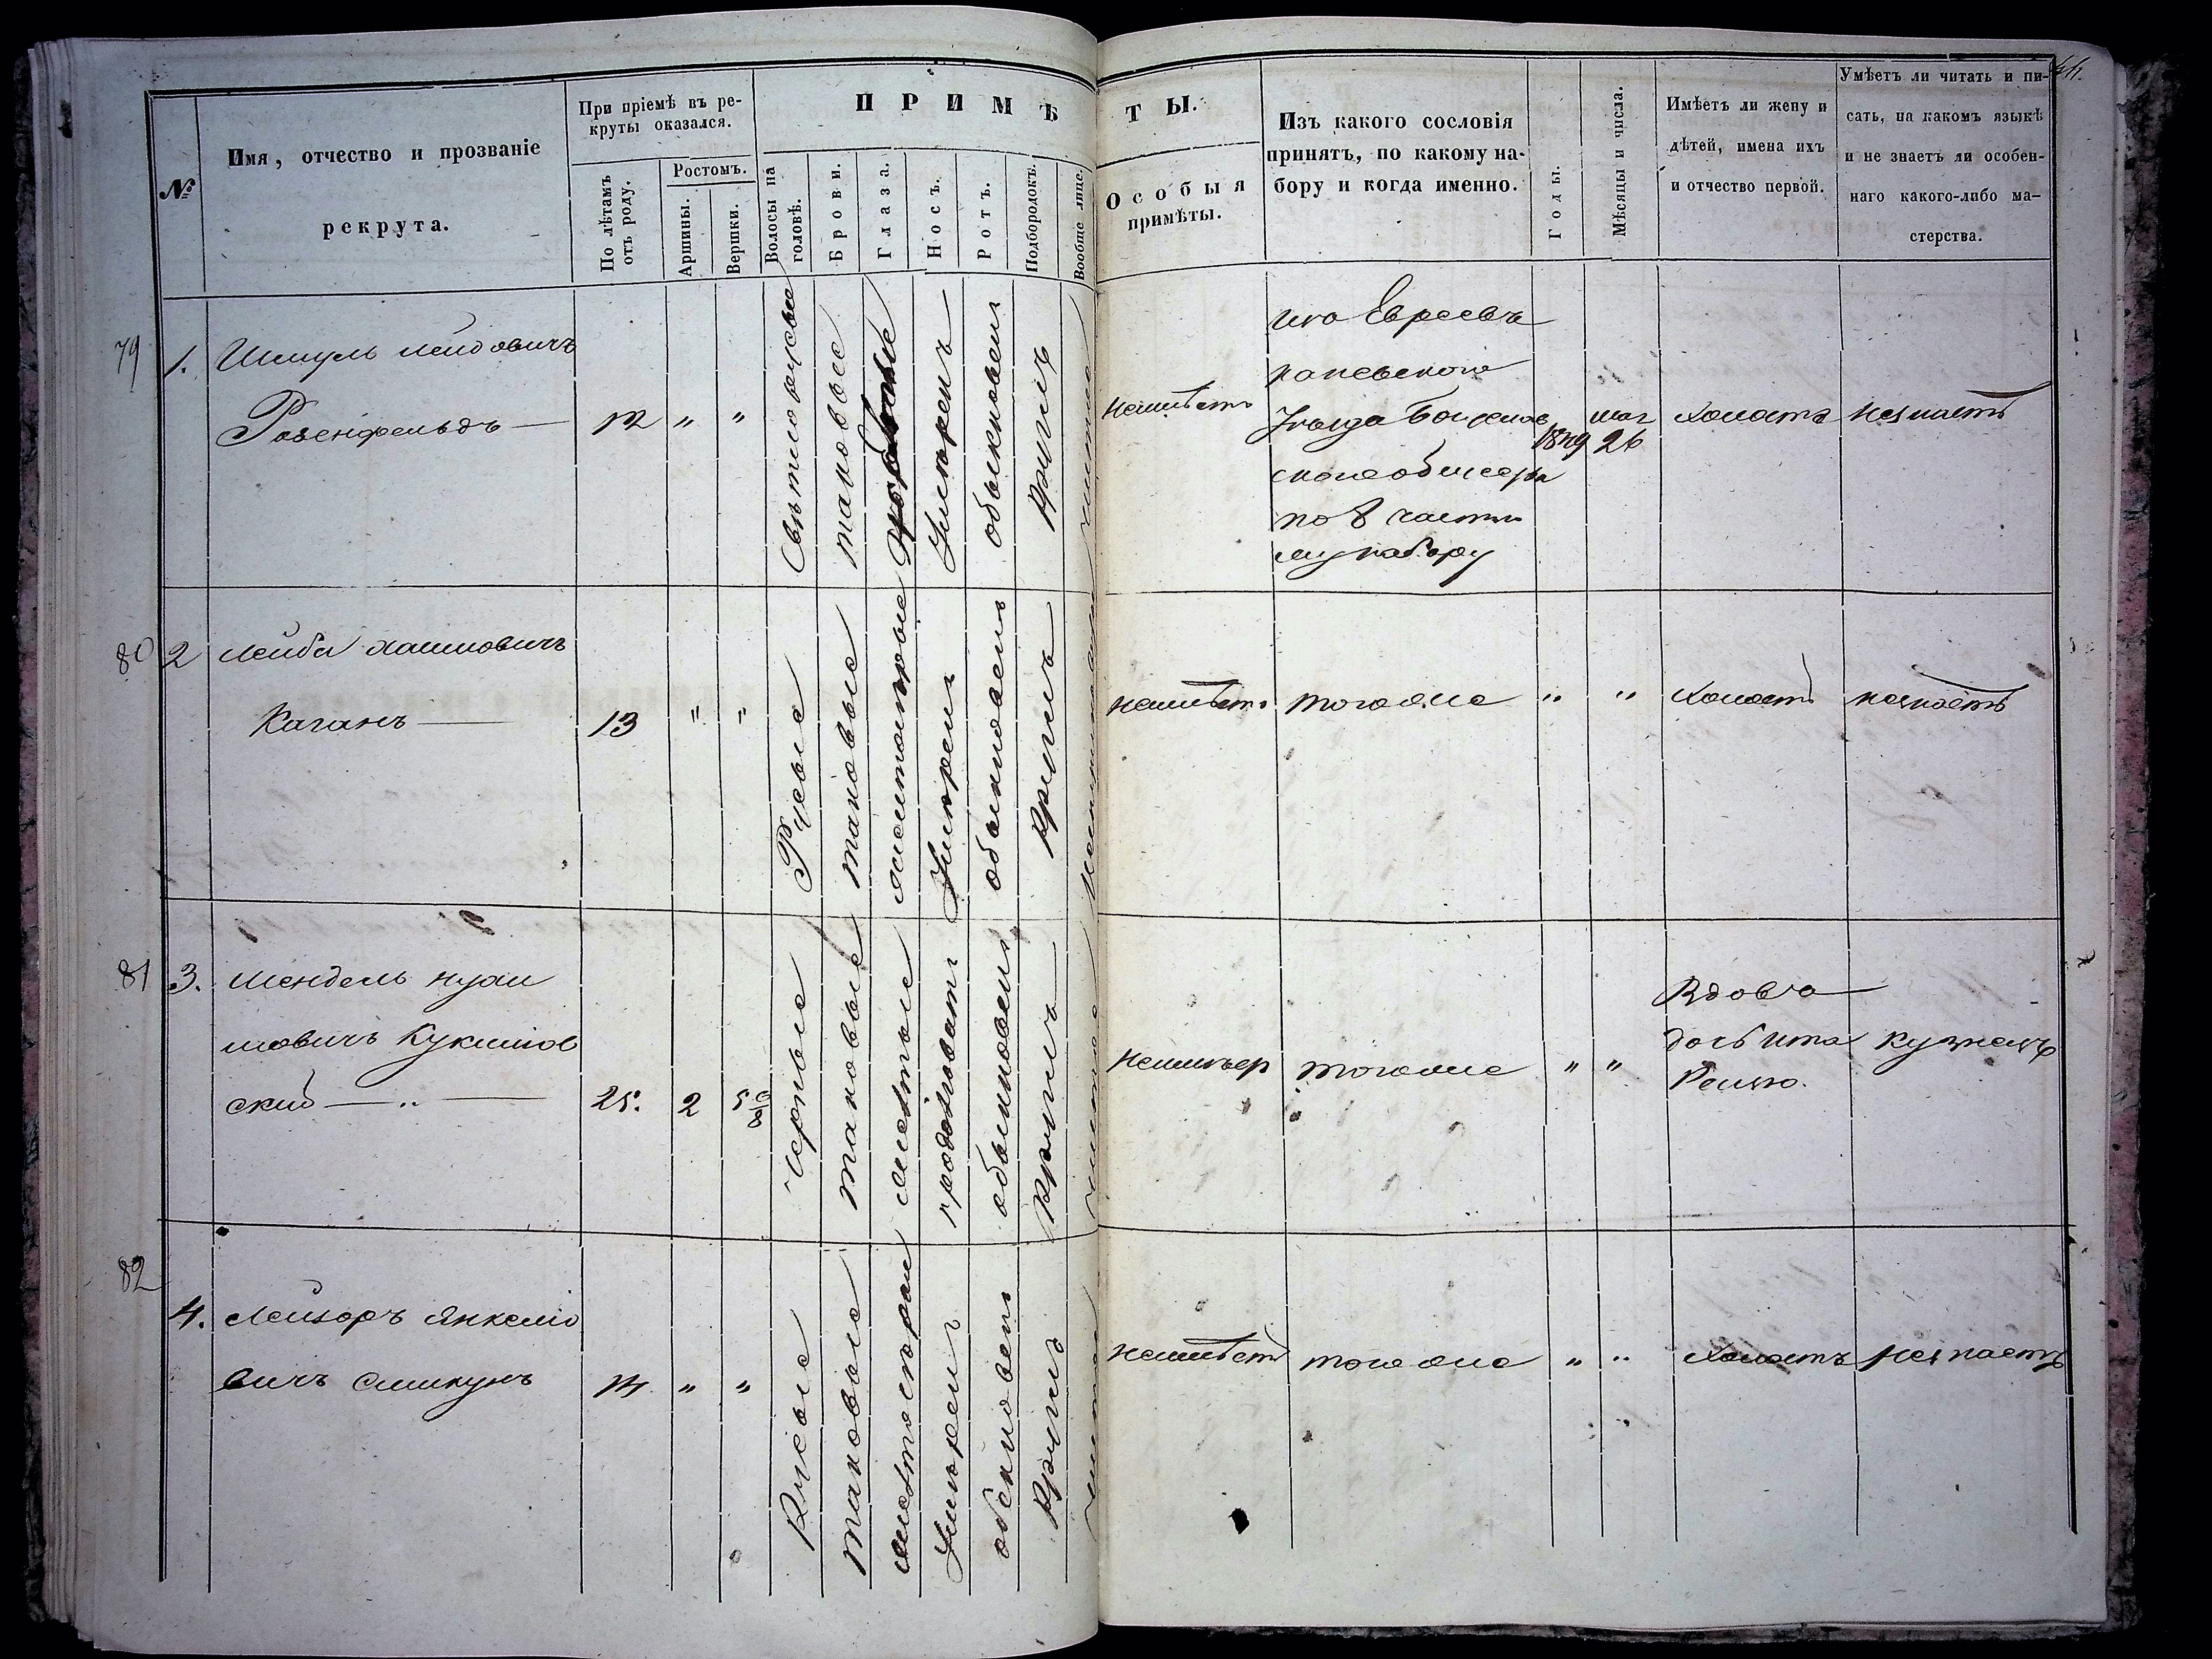 №
Имя, отчество и прозваніе
рекрута.
При пріемѣ въ ре-
круты оказался.
По лѣтамъ
отъ роду.
Ростомъ.
Аршины.
Вершки.
ПРИМѢ
Волосы на
головѣ.
Брови.
Глаза.
Носъ.
Ротъ.
Подбородокъ.
Вообще лице.
ТЫ.
Особыя
примѣты.
Изъ какого сословія
принятъ, по какому на-
бору и когда именно.
Годы.
Мѣсяцы и числа.
Имѣетъ ли жену и
дѣтей, имена ихъ
и отчество первой.
Умѣетъ ли читать и пи-
сать, на какомъ языкѣ
и не знаетъ ли особен-
наго какого-либо ма-
стерства.
79
1.
Шмуль
Розенфельдъ
12
„
„
таковые
Умѣренъ
обыкновенъ
Круглъ
чистое
неимѣетъ
изъ Евреевъ
каневскаго
Уѣзда
по 8 части
му набору
26
Холостъ
незнаетъ
80
2
Лейба Хаимовичъ
Каганъ
13
„
„
Русые
таковые
Умѣрен
обыкновенъ
Круглъ
неимѣетъ
тогоже
„
„
Холостъ
незнаетъ
81
3.
Мендель
мовичъ
ский
25.
2
Черные
таковые
желтые
продолговатъ
обыкновенъ
Круглъ
чистое
тогоже
„
„
Вдовъ
дочь
кузнецъ
82
4.
Лейзоръ Янкеліо
вичъ
14
„
„
Русые
таковые
Умѣрен
Круглъ
чистое
неимѣетъ
тогоже
„
„
Холостъ
незнаетъ